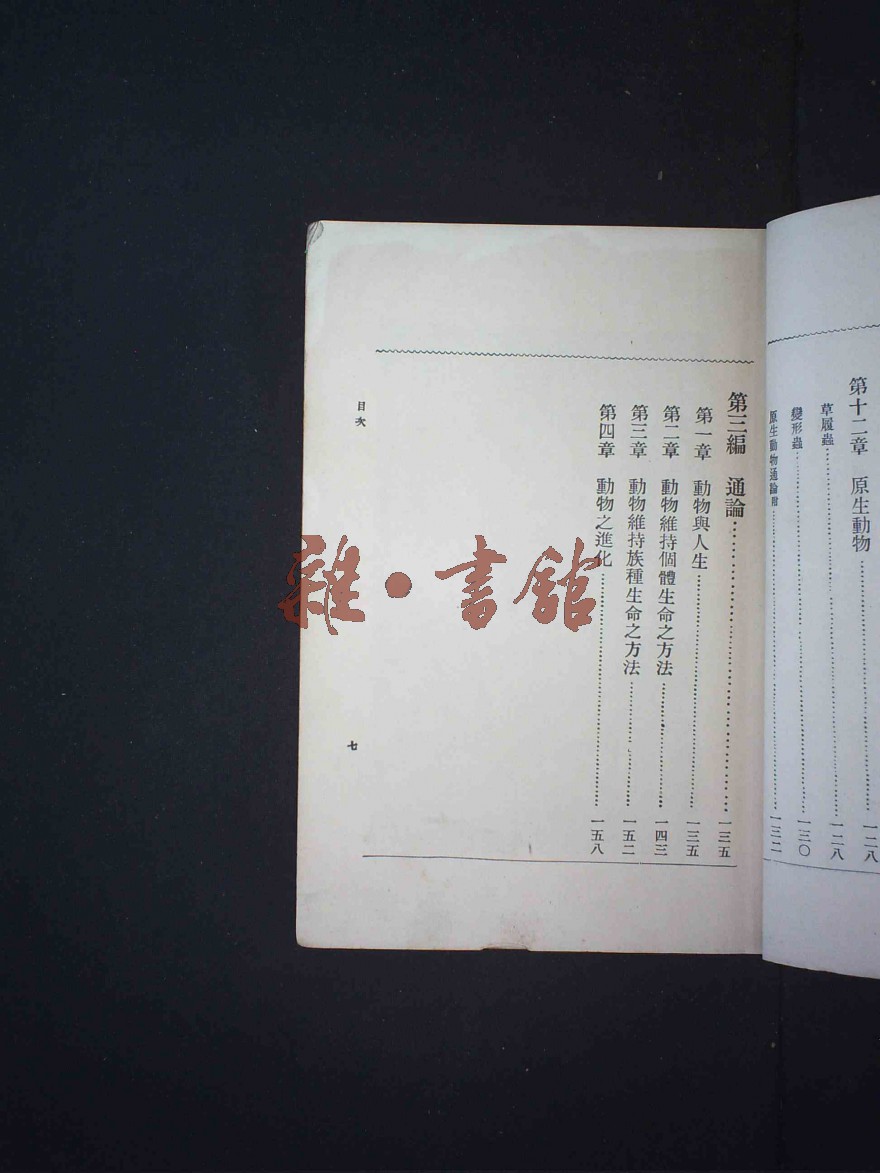 第十二章　原生動物……一二八
草履蟲……一二八
變形蟲……一三〇
原生動物通論附……一三二
第三編　通論……一三五
第一章　動物與人生……一三五
第二章　動物維持個體生命之方法……一四三
第三章　動物維持族種生命之方法……一五二
第四章　動物之進化……一五八
目次
七
雜·書館